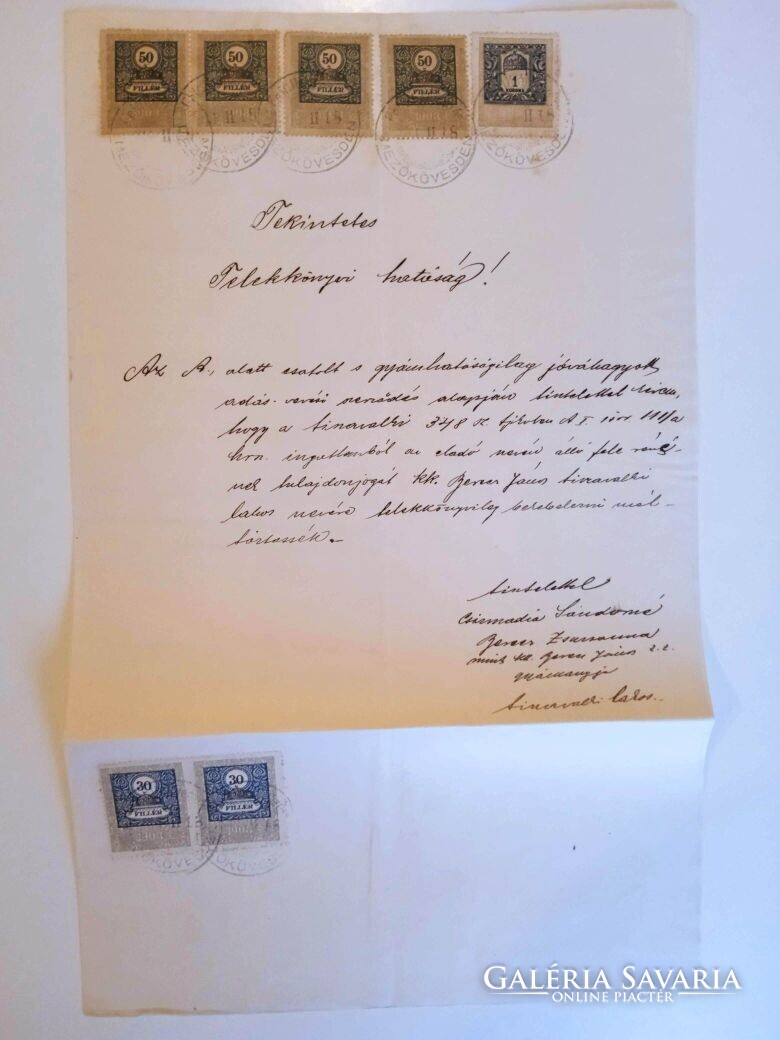 50 50 50 50 1
FILLÉR FILLÉR FILLÉR FILLÉR KORONA
MEZŐKÖVESDEN MEZŐKÖVESDEN MEZŐKÖVESDEN MEZŐKÖVESDEN
Tekintetes
Telekkönyvi hatóság!
Az A, alatt csatolt s gyámhatóságilag jóváhagyott
adás-vevési szerződés alapján tisztelettel
hogy a tiszavalki 348 sz. tjkvben A I. 111/a
hrsz. ingatlanból az eladó nevén álló fele részé-
nek tulajdonjogát kk. Berecz János tiszavalki
lakos nevére telekkönyvileg bekebelezni mél-
tóztassék.-
tisztelettel
Csizmadia Sándorné
Berecz Zsuzsanna
mint kk. Berecz János
gyámanyja
tiszavalki lakos.-
30 30
FILLÉR FILLÉR
MEZŐKÖVESDEN
GALÉRIA SAVARIA
ONLINE PIACTÉR